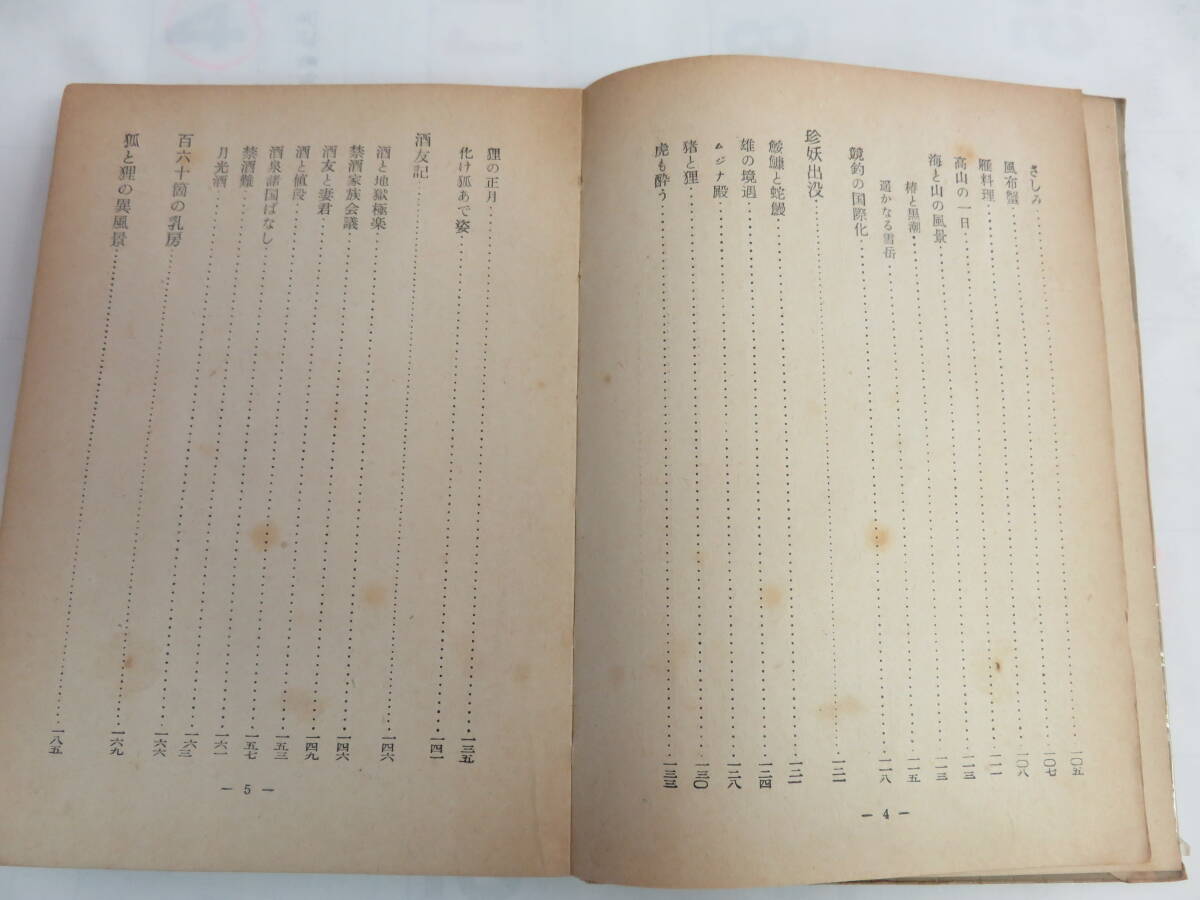 さしみ……一〇五
風布蟹……一〇七
雁料理……一〇八
高山の一日……一一一
海と山の風景……一一三
椿と黒潮……一一三
遥かなる雪岳……一一五
鏡釣の国際化……一一八
珍妖出没……一二一
鮟鱇と蛇鰻……一二一
雄の境遇……一二四
ムジナ殿……一二八
猪と狸……一三〇
虎も酔う……一三三
— 4 —
狸の正月……一三五
化け狐あで姿……一四一
酒友記……一四六
酒と地獄極楽……一四六
禁酒家族会議……一四九
酒友と妻君……一五三
酒と値段……一五七
酒泉諸国ばなし……一六一
禁酒難……一六三
月光酒……一六六
百六十箇の乳房……一六九
狐と狸の異風景……一八五
— 5 —